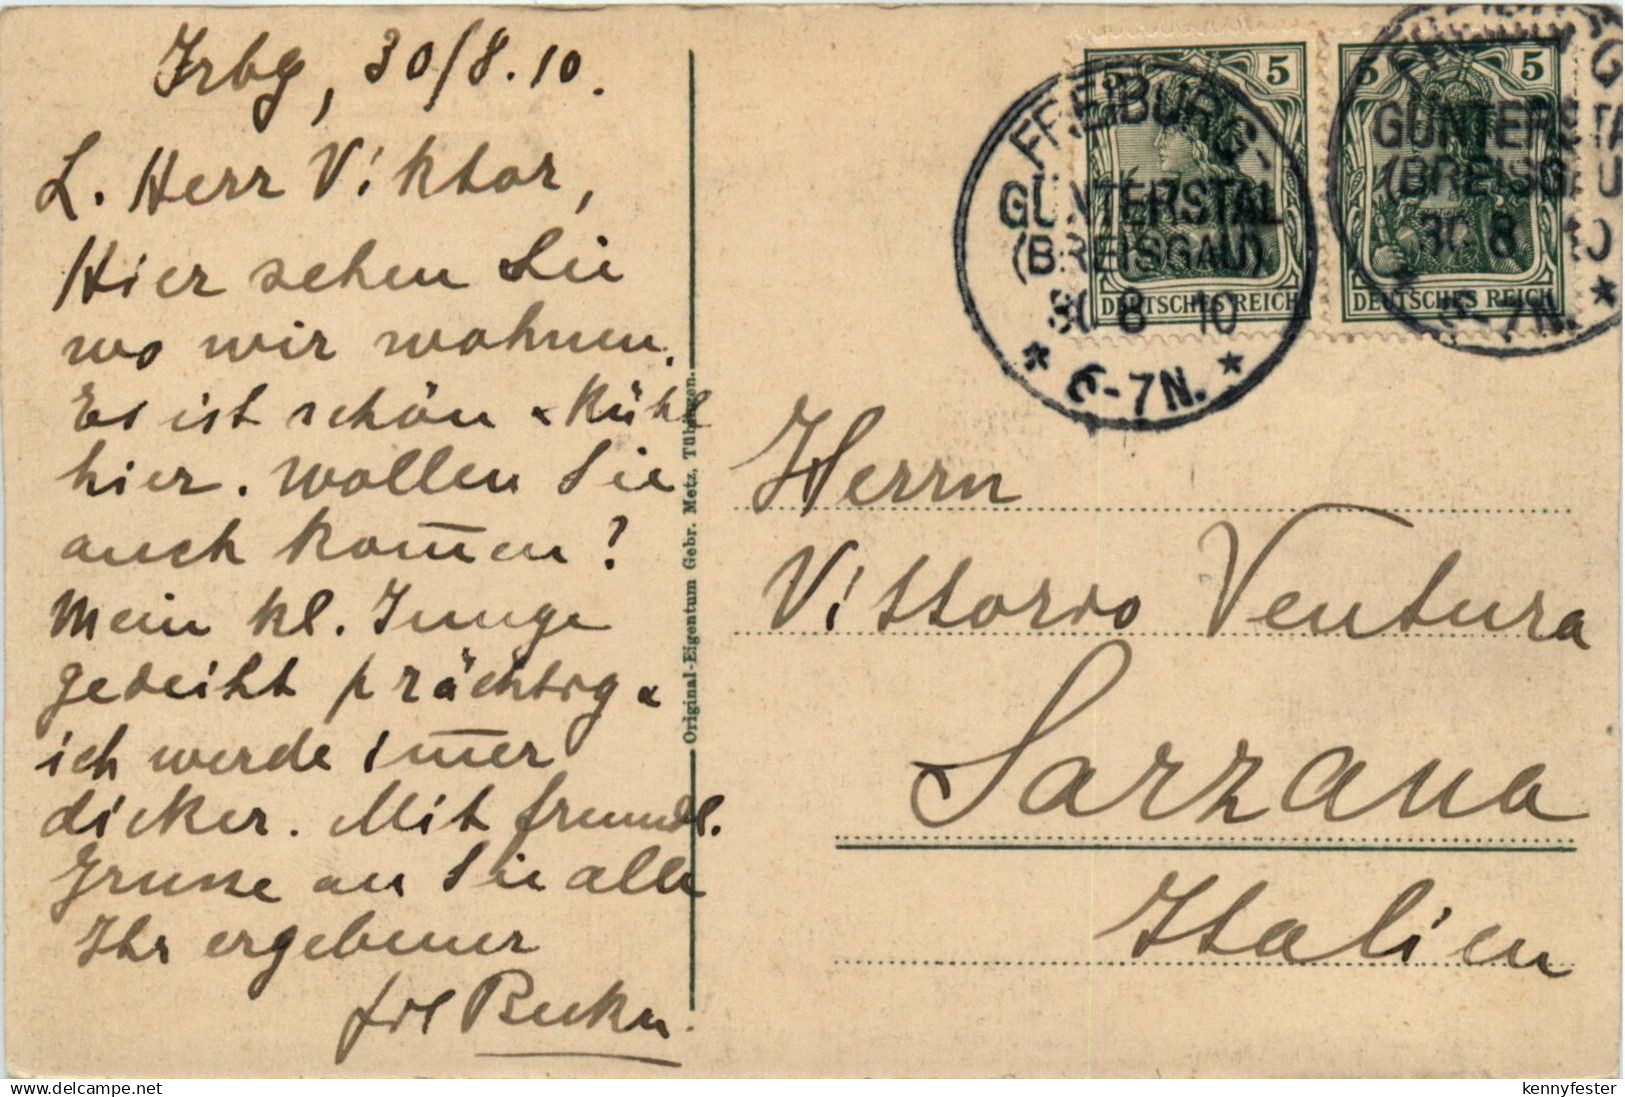 Frbg, 30/8.10.
L. Herr Viktor,
Hier sehen Sie
wo wir wohnen.
Es ist schön & kühl
hier. Wollen Sie
auch kom̅en?
Mein kl. Junge
gedeiht prächtig &
ich werde im̅er
dicker. Mit freundl.
Grusse an Sie alle
Ihr ergebener
Original-Eigentum Gebr. Metz, Tübingen.
5 5
DEUTSCHES REICH
FREIBURG-
GÜNTERSTAL
(BREISGAU)
30 8 10
* 6-7N. *
5 5
DEUTSCHES REICH
GÜNTERSTA
(BREISGAU
30 8 10
6-7N. *
Herrn
Vittorio Ventura
Sarzana
Italien
delcampe.net
kennyfester